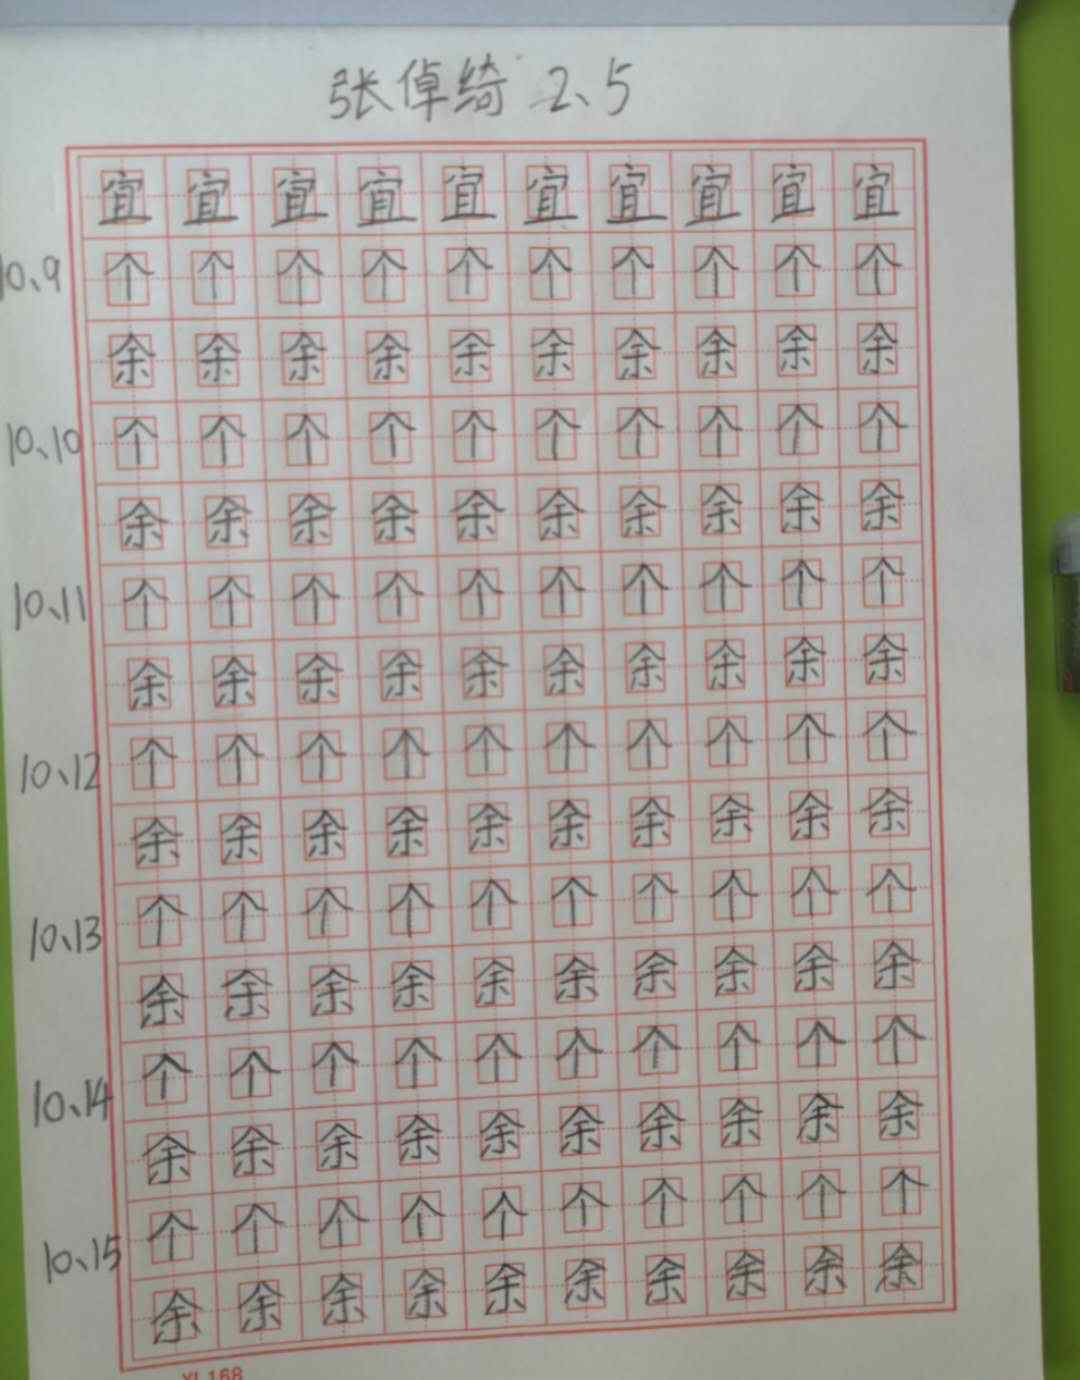 张倬绮 2、5
宜宜宜宜宜宜宜宜宜宜
10、9 个个个个个个个个个个
余余余余余余余余余余
10、10 个个个个个个个个个个
余余余余余余余余余余
10、11 个个个个个个个个个个
余余余余余余余余余余
10、12 个个个个个个个个个个
余余余余余余余余余余
10、13 个个个个个个个个个个
余余余余余余余余余余
10、14 个个个个个个个个个个
余余余余余余余余余余
10、15 个个个个个个个个个个
余余余余余余余余余余